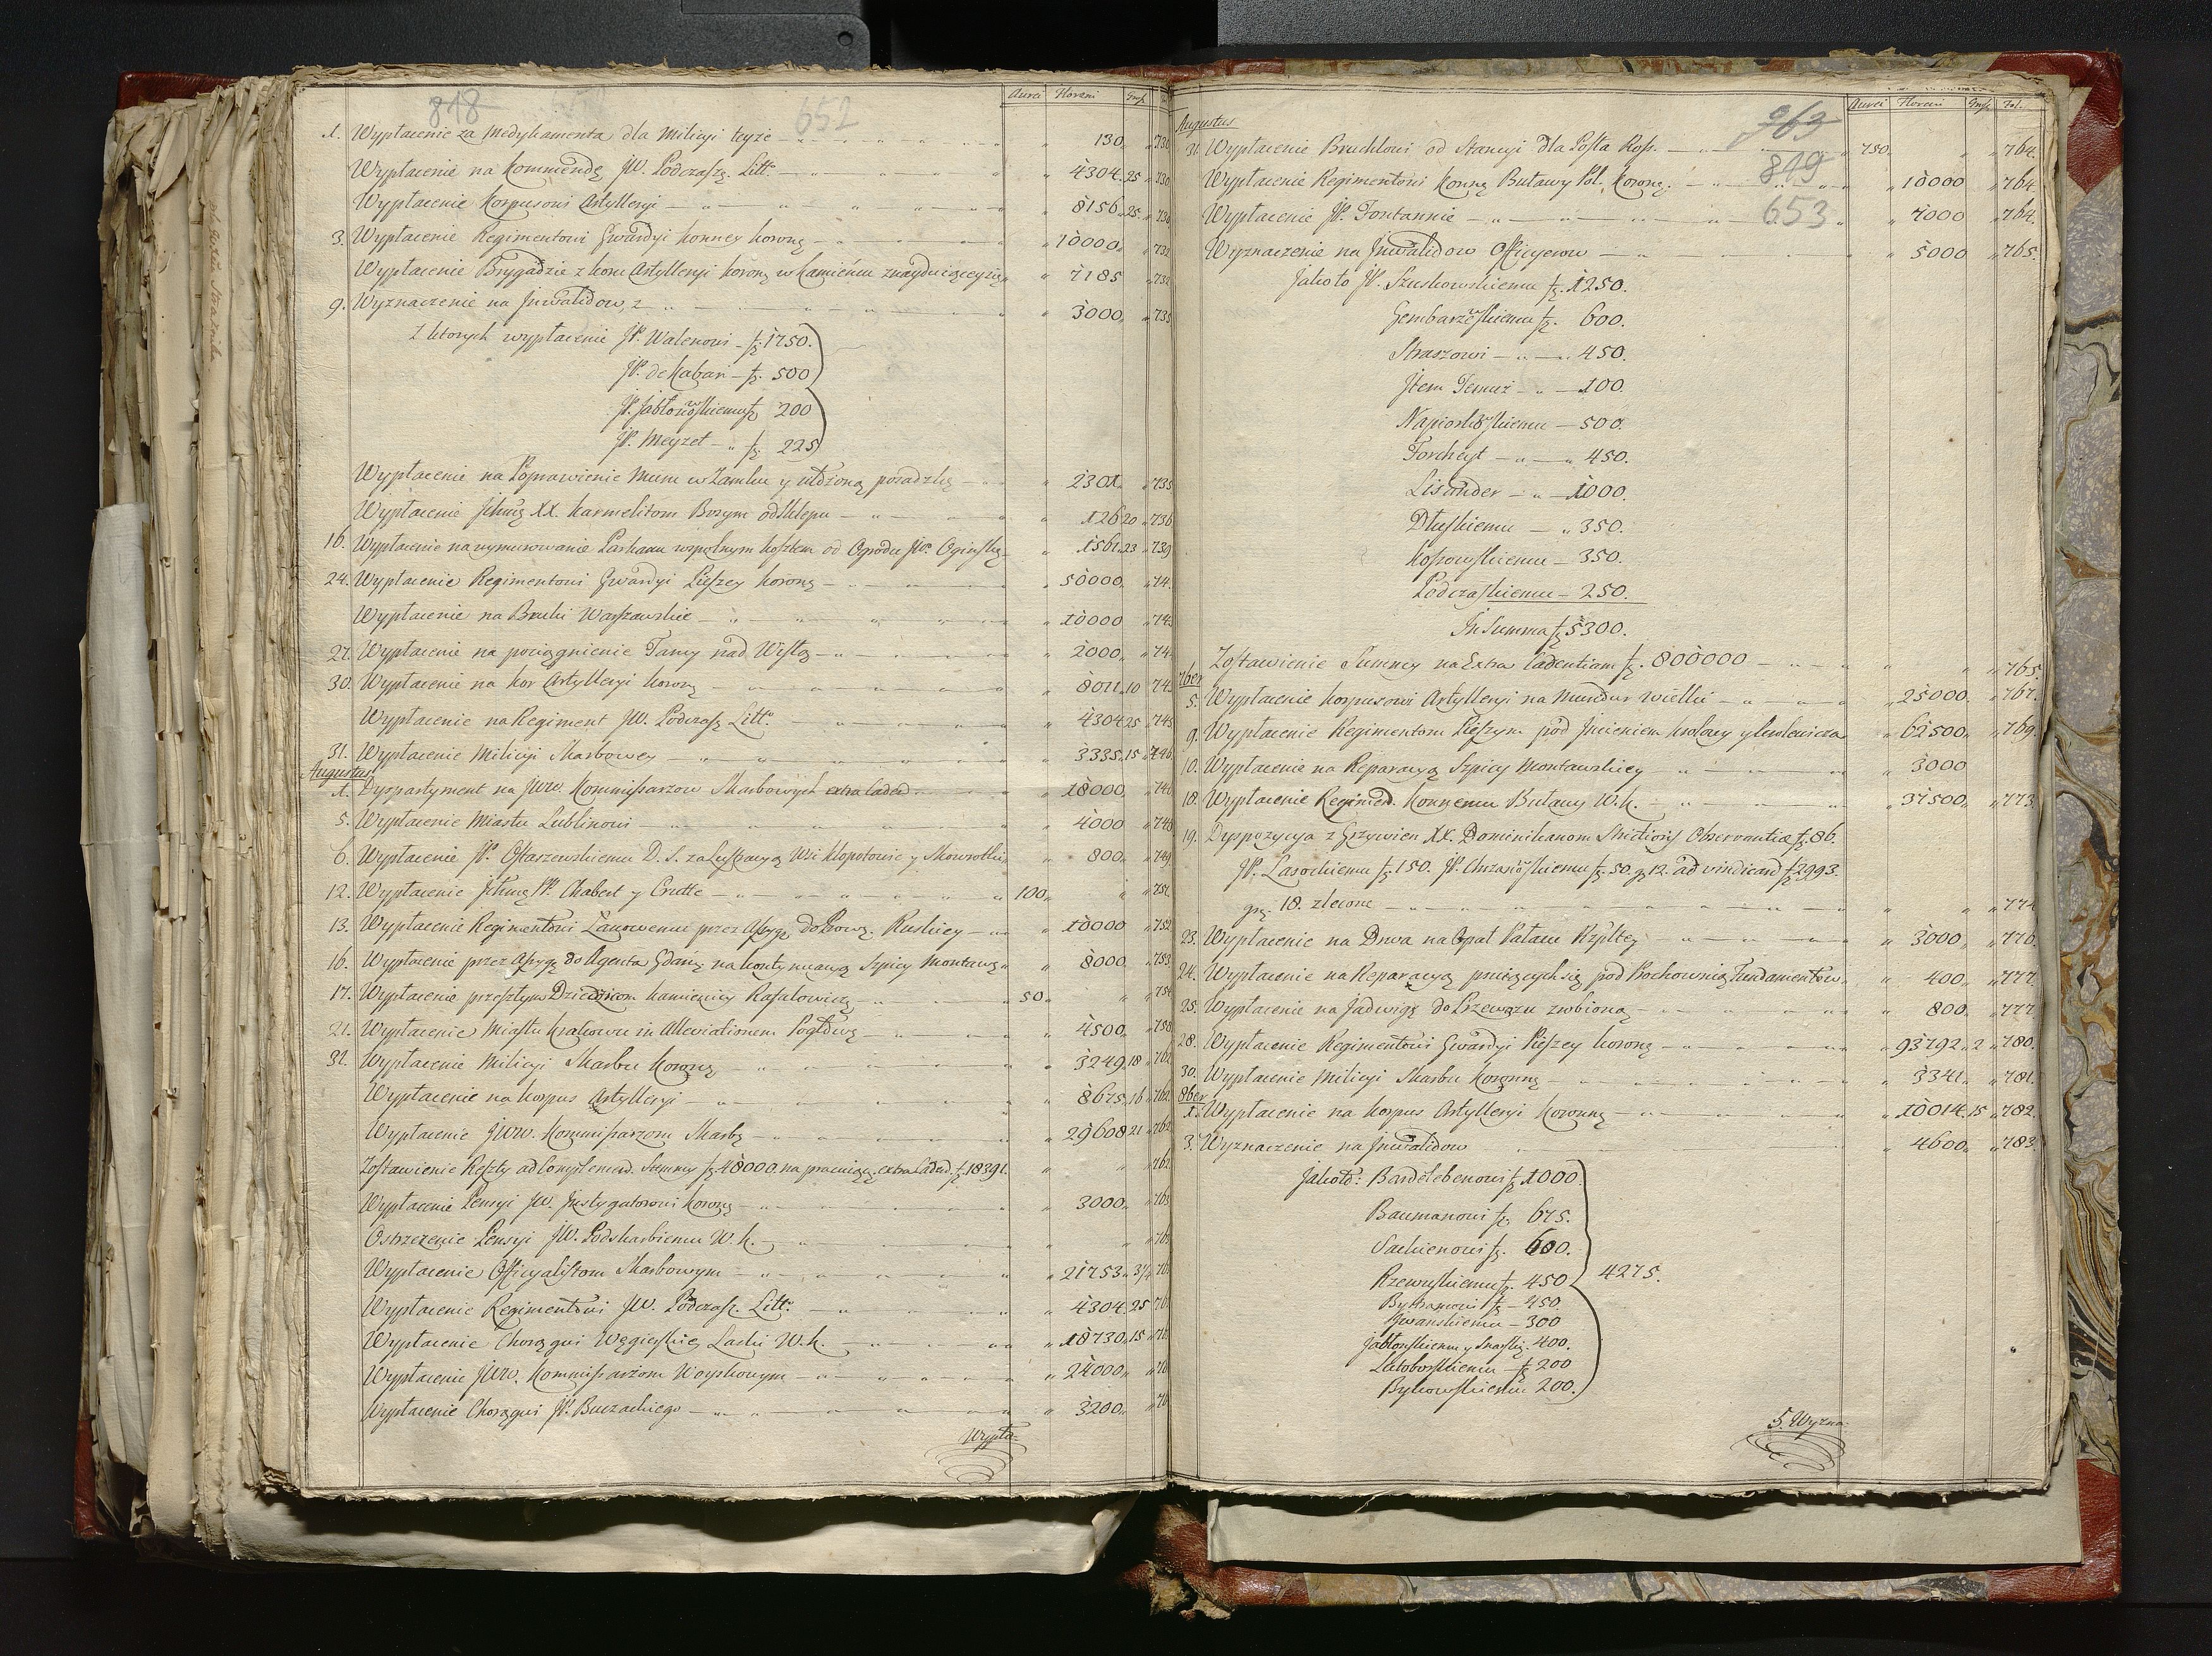 818 652
Aurei Floreni Gross
1. Wypłacenie za Medykamenta dla Milicyi teyże 130. 730
Wypłacenie na Kommendę JW. Podczaszg. Litt. 4304. 25 730
Wypłacenie Korpusowi Artylleryi 8156. 25 730
3. Wypłacenie Regimentowi Gwardyi Konney Koronę 10000. 732
Wypłacenie Brygadzie z kom Artylleryi koronę w Kamieńcu znayduiącey się 7185 732
9. Wyznaczenie na Inwalidow, z 3000. 735
Z ktorych wypłacenie JP. Walenowi fz. 1750.
JP. de Kaban fz. 500
JP. Jabłonowskiemu fz. 200
JP. Meyzet fz. 225
Wypłacenie na Poprawienie Muru w Zamku y posadzkę 2301. 735
Wypłacenie XX. Karmelitom Bosym od Sklepu 126 20 736
16. Wypłacenie na wymurowanie Parkanu wspolnym kosztem od Ogrodu JW. Oginskę 1561. 23 739
24. Wypłacenie Regimentowi Gwardyi Pieszey koronę 50000. 74
Wypłacenie na Bruki Warszawskie 10000 743
27. Wypłacenie na pociągnienie Tamy nad Wisłą 2000. 74
30. Wypłacenie na Kor Artylleryi koronę 8011. 10 745
Wypłacenie na Regiment JW. Podczasz. Litt. 4304 25 745
31. Wypłacenie Milicyi Skarbowey 3335. 15 746
Augustus
1. Dyspartyment na JWW. Kommissarzow Skarbowych extra Caden 18000. 746
5. Wypłacenie Miastu Lublinowi 4000 748
6. Wypłacenie JP. Ostaszewskiemu D. S. za Lustracyą Wsi Kłopotowic y Skowrotki 800. 749
12. Wypłacenie PP. Chabert y Crutte 100. 751
13. Wypłacenie Regimentowi Łanowemu przez Assygę do Prowę. Ruskiey 10000 752
16. Wypłacenie przez Assygę do Agenta Gdanę na kontynuacyą Szpicy Montawę 8000. 753
17. Wypłacenie przeszłym Dziedzicom Kamienicy Rafałowiczę 50. 754
21. Wypłacenie Miastu Krakowu in Alleviationem Pogłowę 4500. 758
31. Wypłacenie Milicyi Skarbu Koronę 3249. 18 762
Wypłacenie na korpus Artylleryi 8675. 16 762
Wypłacenie JWW. Kommissarzom Skarbę 29608 21 762
Zostawienie Reszty ad Complemend. Summy fz. 48000. na extra Caden. fz. 18391. 762
Wypłacenie Pensyi JW. Instygatorowi koronę 3000. 763
Ostrzezenie Pensyi JW. Podskarbiemu W. K. 76
Wypłacenie Officyalistom Skarbowym 21753. 3¼ 76
Wypłacenie Regimentowi JW. Podczasz. Litt. 4304. 25 76
Wypłacenie Chorągwi Węgierskię Laski W. K. 18730. 15 76
Wypłacenie JWW. Kommissarzom Woyskowym 24000. 76
Wypłacenie Chorągwi JP. Buczackiego 3200. 76
Wypła-
963
819
653
Aurei Floreni Gross Fol.
Augustus
31. Wypłacenie Bruchlowi od Stancyi dla Posła Ross. 750. 764.
Wypłacenie Regimentowi Konnę Buławy Pol. Koronę. 10000 764.
Wypłacenie JP. Fontannie 4000 764.
Wyznaczenie na Inwalidow Officyerow 5000 765.
Jakoto JP. Szuskowskiemu fz. 1250.
Gembarzewskiemu fz. 600.
Straszowi 450.
Item Temuż 100.
Napiorkowskiemu 500.
Forcheyt 450.
Lisander 1000.
Dłuskiemu 350.
Kossowskiemu 350.
Podczaskiemu 250.
In Summa fz. 5300.
Zostawienie Summy na Extra Cadentiam fz. 800000 765.
7ber
5. Wypłacenie korpusowi Artylleryi na Mundur wielki 25000. 767.
9. Wypłacenie Regimentom Pieszym pod Imieniem Krolowy y Krolewicza 62500. 769.
10. Wypłacenie na Reparacyą Szpicy Montawskiey 3000
18. Wypłacenie Regimen. Konnemu Buławy W. K. 37500. 773.
19. Dyspozycya z Grzywien XX. Dominikanom Strictioris Observantiæ fz. 86.
JP. Lasockiemu fz. 150. JP. Chrzanowskiemu fz. 50. g. 12. ad vindicand fz. 2993.
gr. 18. zlecone 774
23. Wypłacenie na Drwa na Opał Pałacu Rzpltey 3000. 776.
24. Wypłacenie na Reparacyą psuiących się pod Prochownią Fundamentow 400. 777.
25. Wypłacenie na Jadwigę do Przewozu zrobioną 800. 777
28. Wypłacenie Regimentowi Gwardyi Pieszey koronę 93792. 2 780.
30. Wypłacenie Milicyi Skarbu Koronnę 3341. 781.
8ber
1. Wypłacenie na korpus Artylleryi Koronnę 10014. 15 782.
3. Wyznaczenie na Inwalidow 4600. 783.
Jakoto: Bardelebenowi fz. 1000.
Baumanowi fz. 675.
Sackienowi fz. 600.
Rzewuskiemu fz. 450 4275.
Bystramowi fz. 450.
Iwanskiemu 300
Jabłonskiemu y 400.
Lutoborskiemu fz. 200
Bykowskiemu 200.
5. Wyzna-